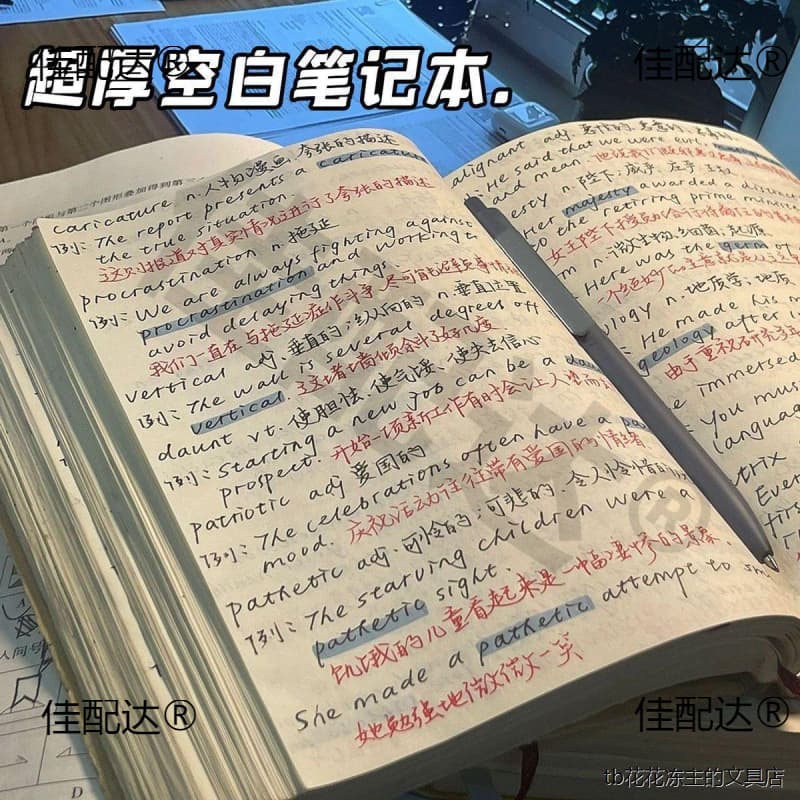 超厚空白笔记本.
佳配达®
佳配达®
caricature n.人物漫画,夸张的描述
例: The report presents a caricature
the true situation.
这则报道对真实情况进行了夸张的描述
procrastination n. 拖延
例: We are always fighting against
procrastination and working to
avoid delaying things.
我们一直在与拖延症作斗争,尽可能避免事情
vertical adj.垂直的;纵向的 n.垂直位置
例: The wall is several degrees off
vertical. 这堵墙倾斜了好几度
daunt vt. 使胆怯、使气馁、使失去信心
例: Starting a new job can be a
prospect. 开始一项新工作有时会让人
patriotic adj 爱国的
例: The celebrations often have a
mood. 庆祝活动往往带有爱国的情绪
pathetic adj.可怜的;可悲的、令人怜惜的
例: The starving children were a
pathetic sight.
饥饿的儿童看起来是一幅凄惨的景象
She made a pathetic attempt to
她勉强地微微一笑
alignant adj.
: He said that we were evil,
and mean.
esty n.陛下,威严,庄严
: Her majesty awarded a
to the retiring prime
女王陛下
m n.微生物,细菌,起源
: Here was the germ of
ology n.地质学,地质
: He made his
geology after
由于重视
e immersed
: You must
language
trix
Ever
first
®
佳配达®
佳配达®
tb花花冻主的文具店